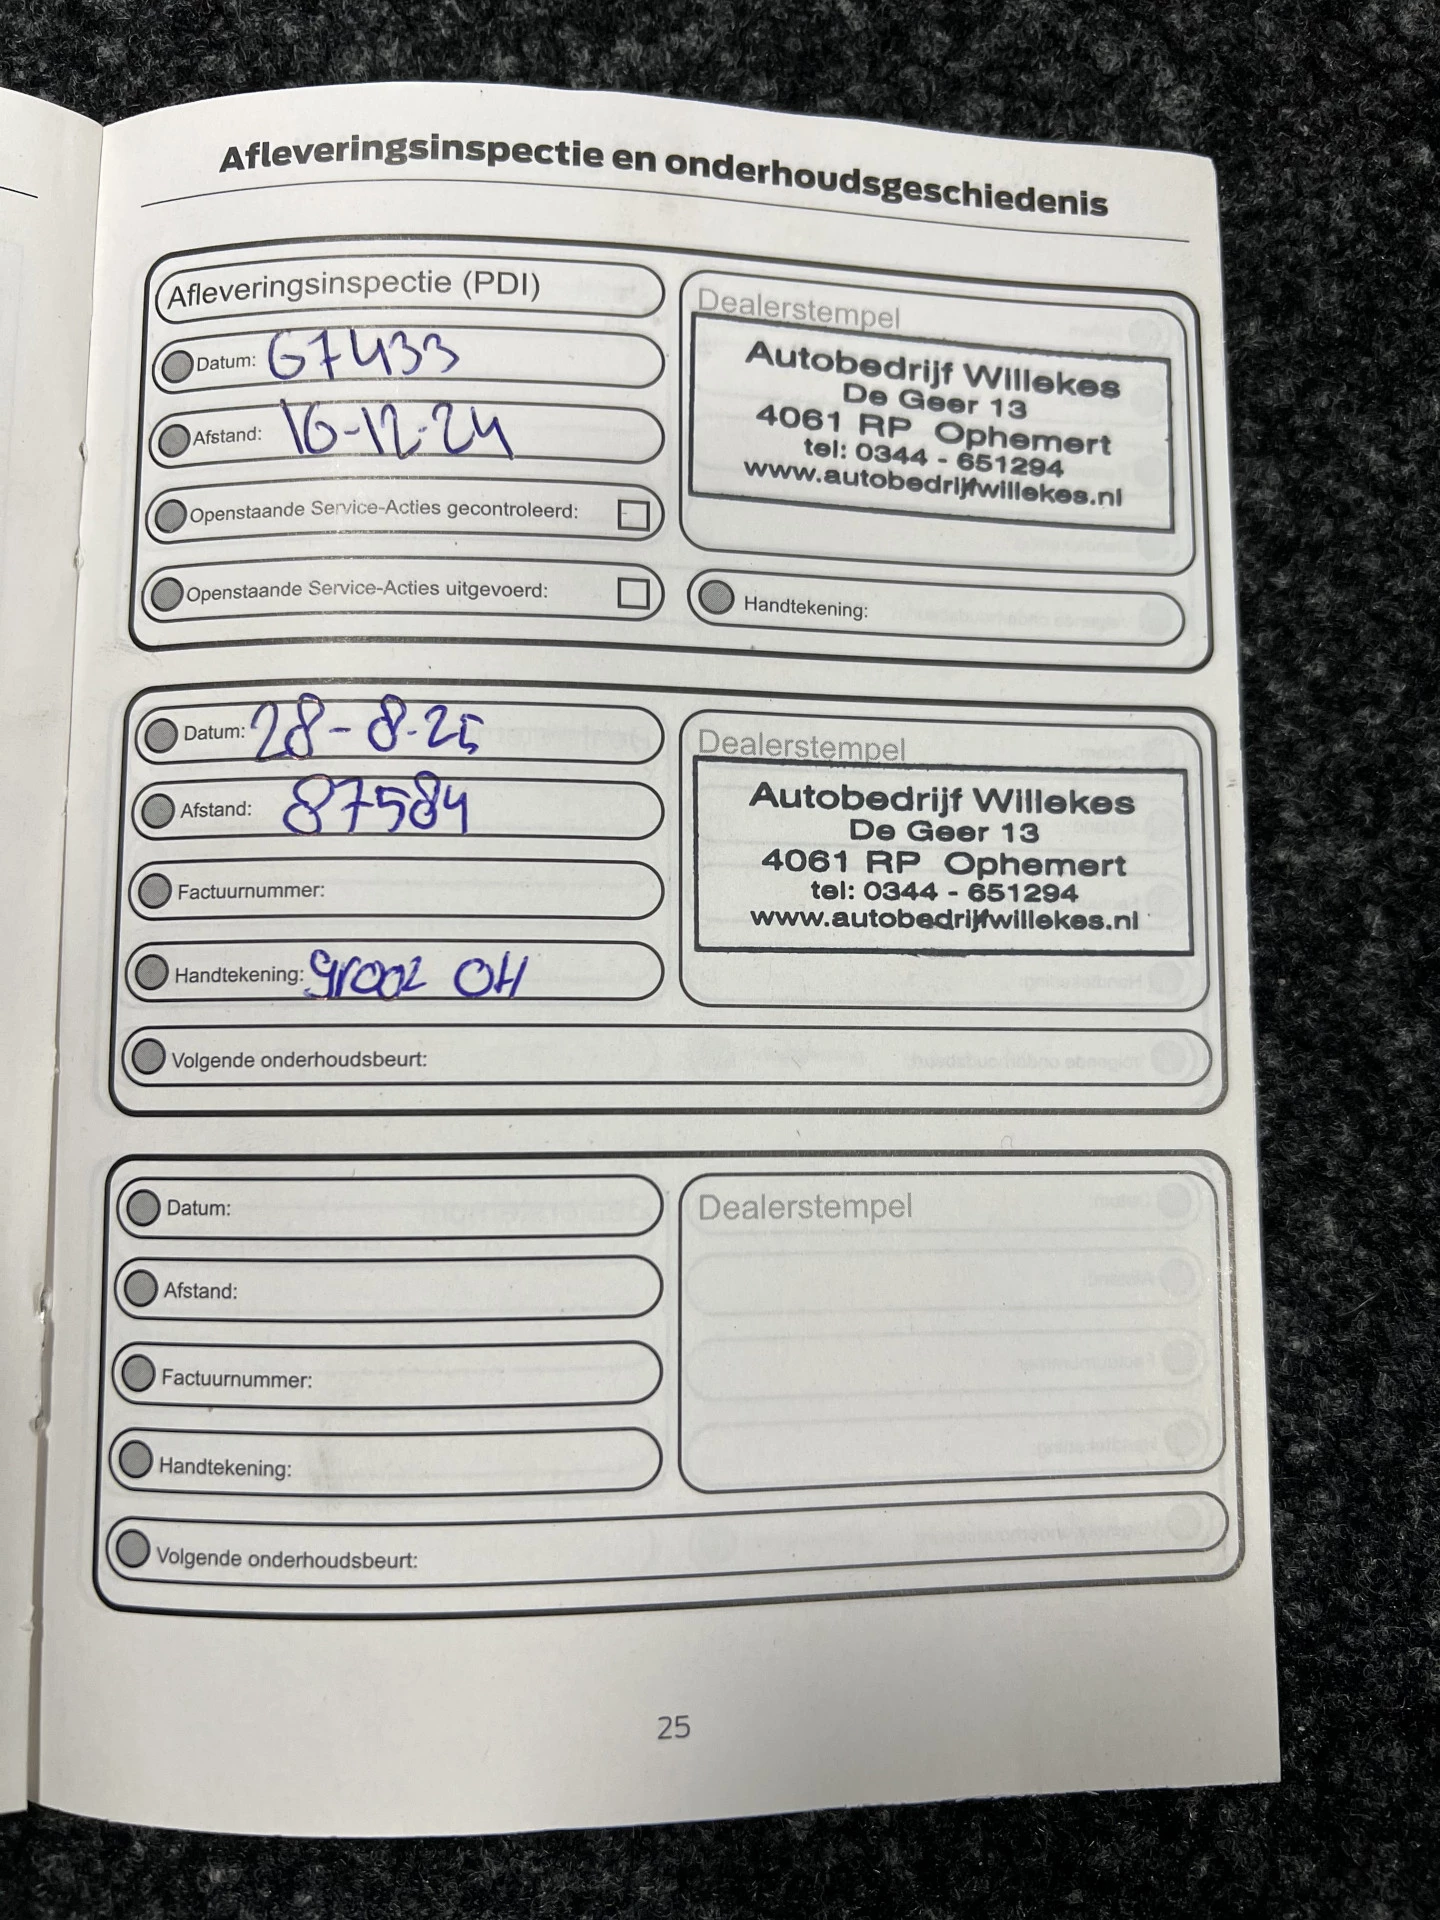 Afleveringsinspectie en onderhoudsgeschiedenis
Afleveringsinspectie (PDI)
Datum: 67433
Afstand: 16-12-24
Openstaande Service-Acties gecontroleerd:
Openstaande Service-Acties uitgevoerd:
Dealerstempel
Autobedrijf Willekes
De Geer 13
4061 RP Ophemert
tel: 0344 - 651294
www.autobedrijfwillekes.nl
Handtekening:
Datum: 28-8-25
Afstand: 87584
Factuurnummer:
Handtekening: groot OH
Dealerstempel
Autobedrijf Willekes
De Geer 13
4061 RP Ophemert
tel: 0344 - 651294
www.autobedrijfwillekes.nl
Volgende onderhoudsbeurt:
Datum:
Afstand:
Factuurnummer:
Handtekening:
Dealerstempel
Volgende onderhoudsbeurt:
25